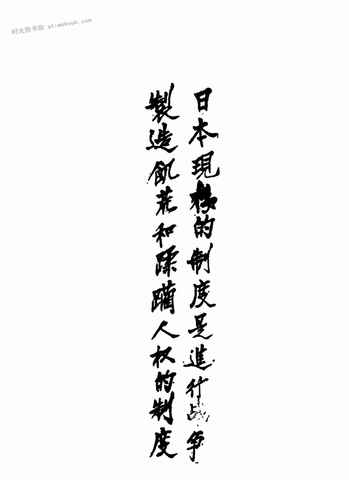 时光图书馆 at-mebook.com
日本現樣的制度是進行战争
製造飢荒和蹂躪人权的制度